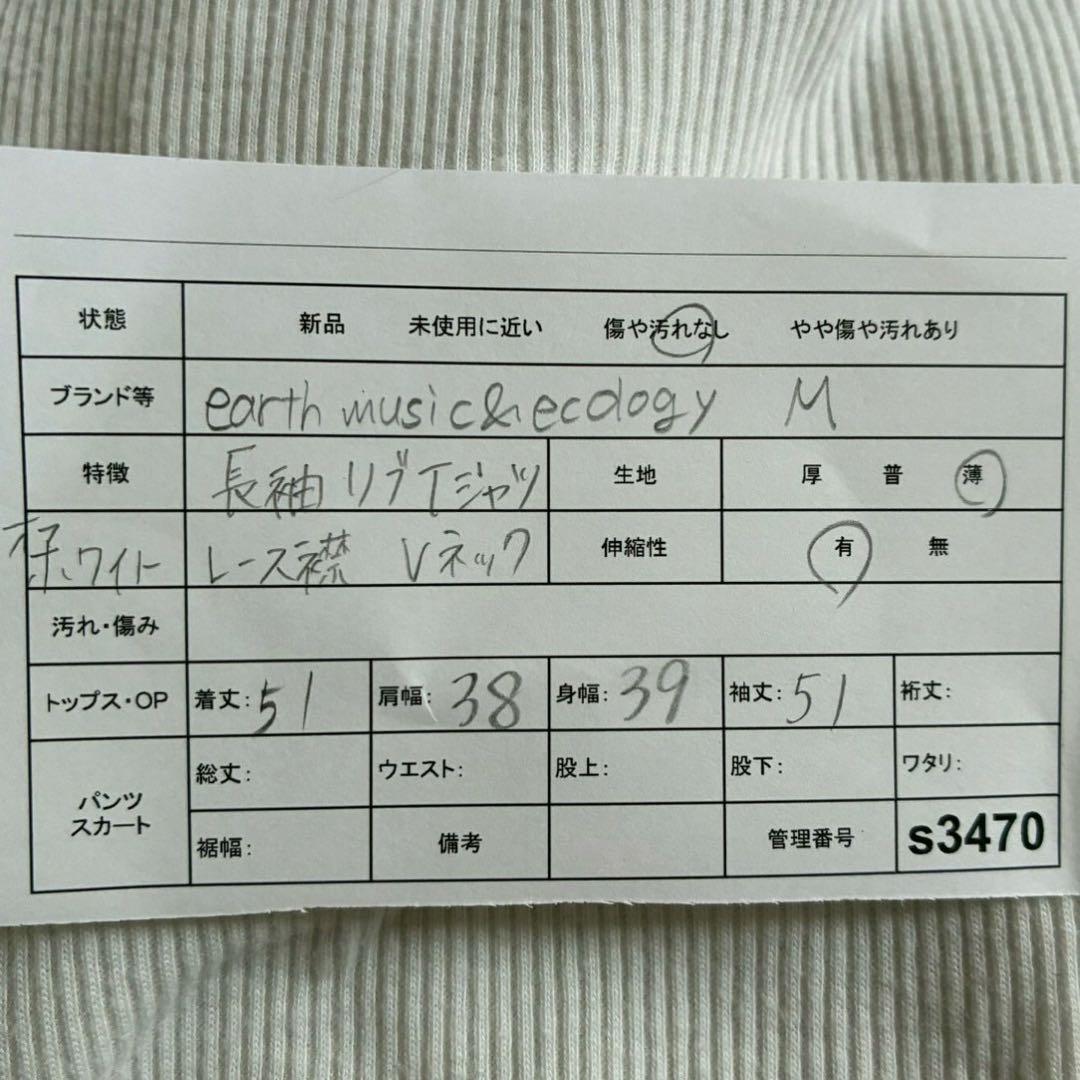 状態 新品 未使用に近い 傷や汚れなし やや傷や汚れあり
ブランド等 earth music&ecology M
特徴 長袖リブTシャツ 生地 厚 普 薄
ホワイト レース襟 Vネック 伸縮性 有 無
汚れ・傷み
トップス・OP 着丈:51 肩幅:38 身幅:39 袖丈:51 裄丈:
パンツ スカート 総丈: ウエスト: 股上: 股下: ワタリ:
裾幅: 備考 管理番号 s3470